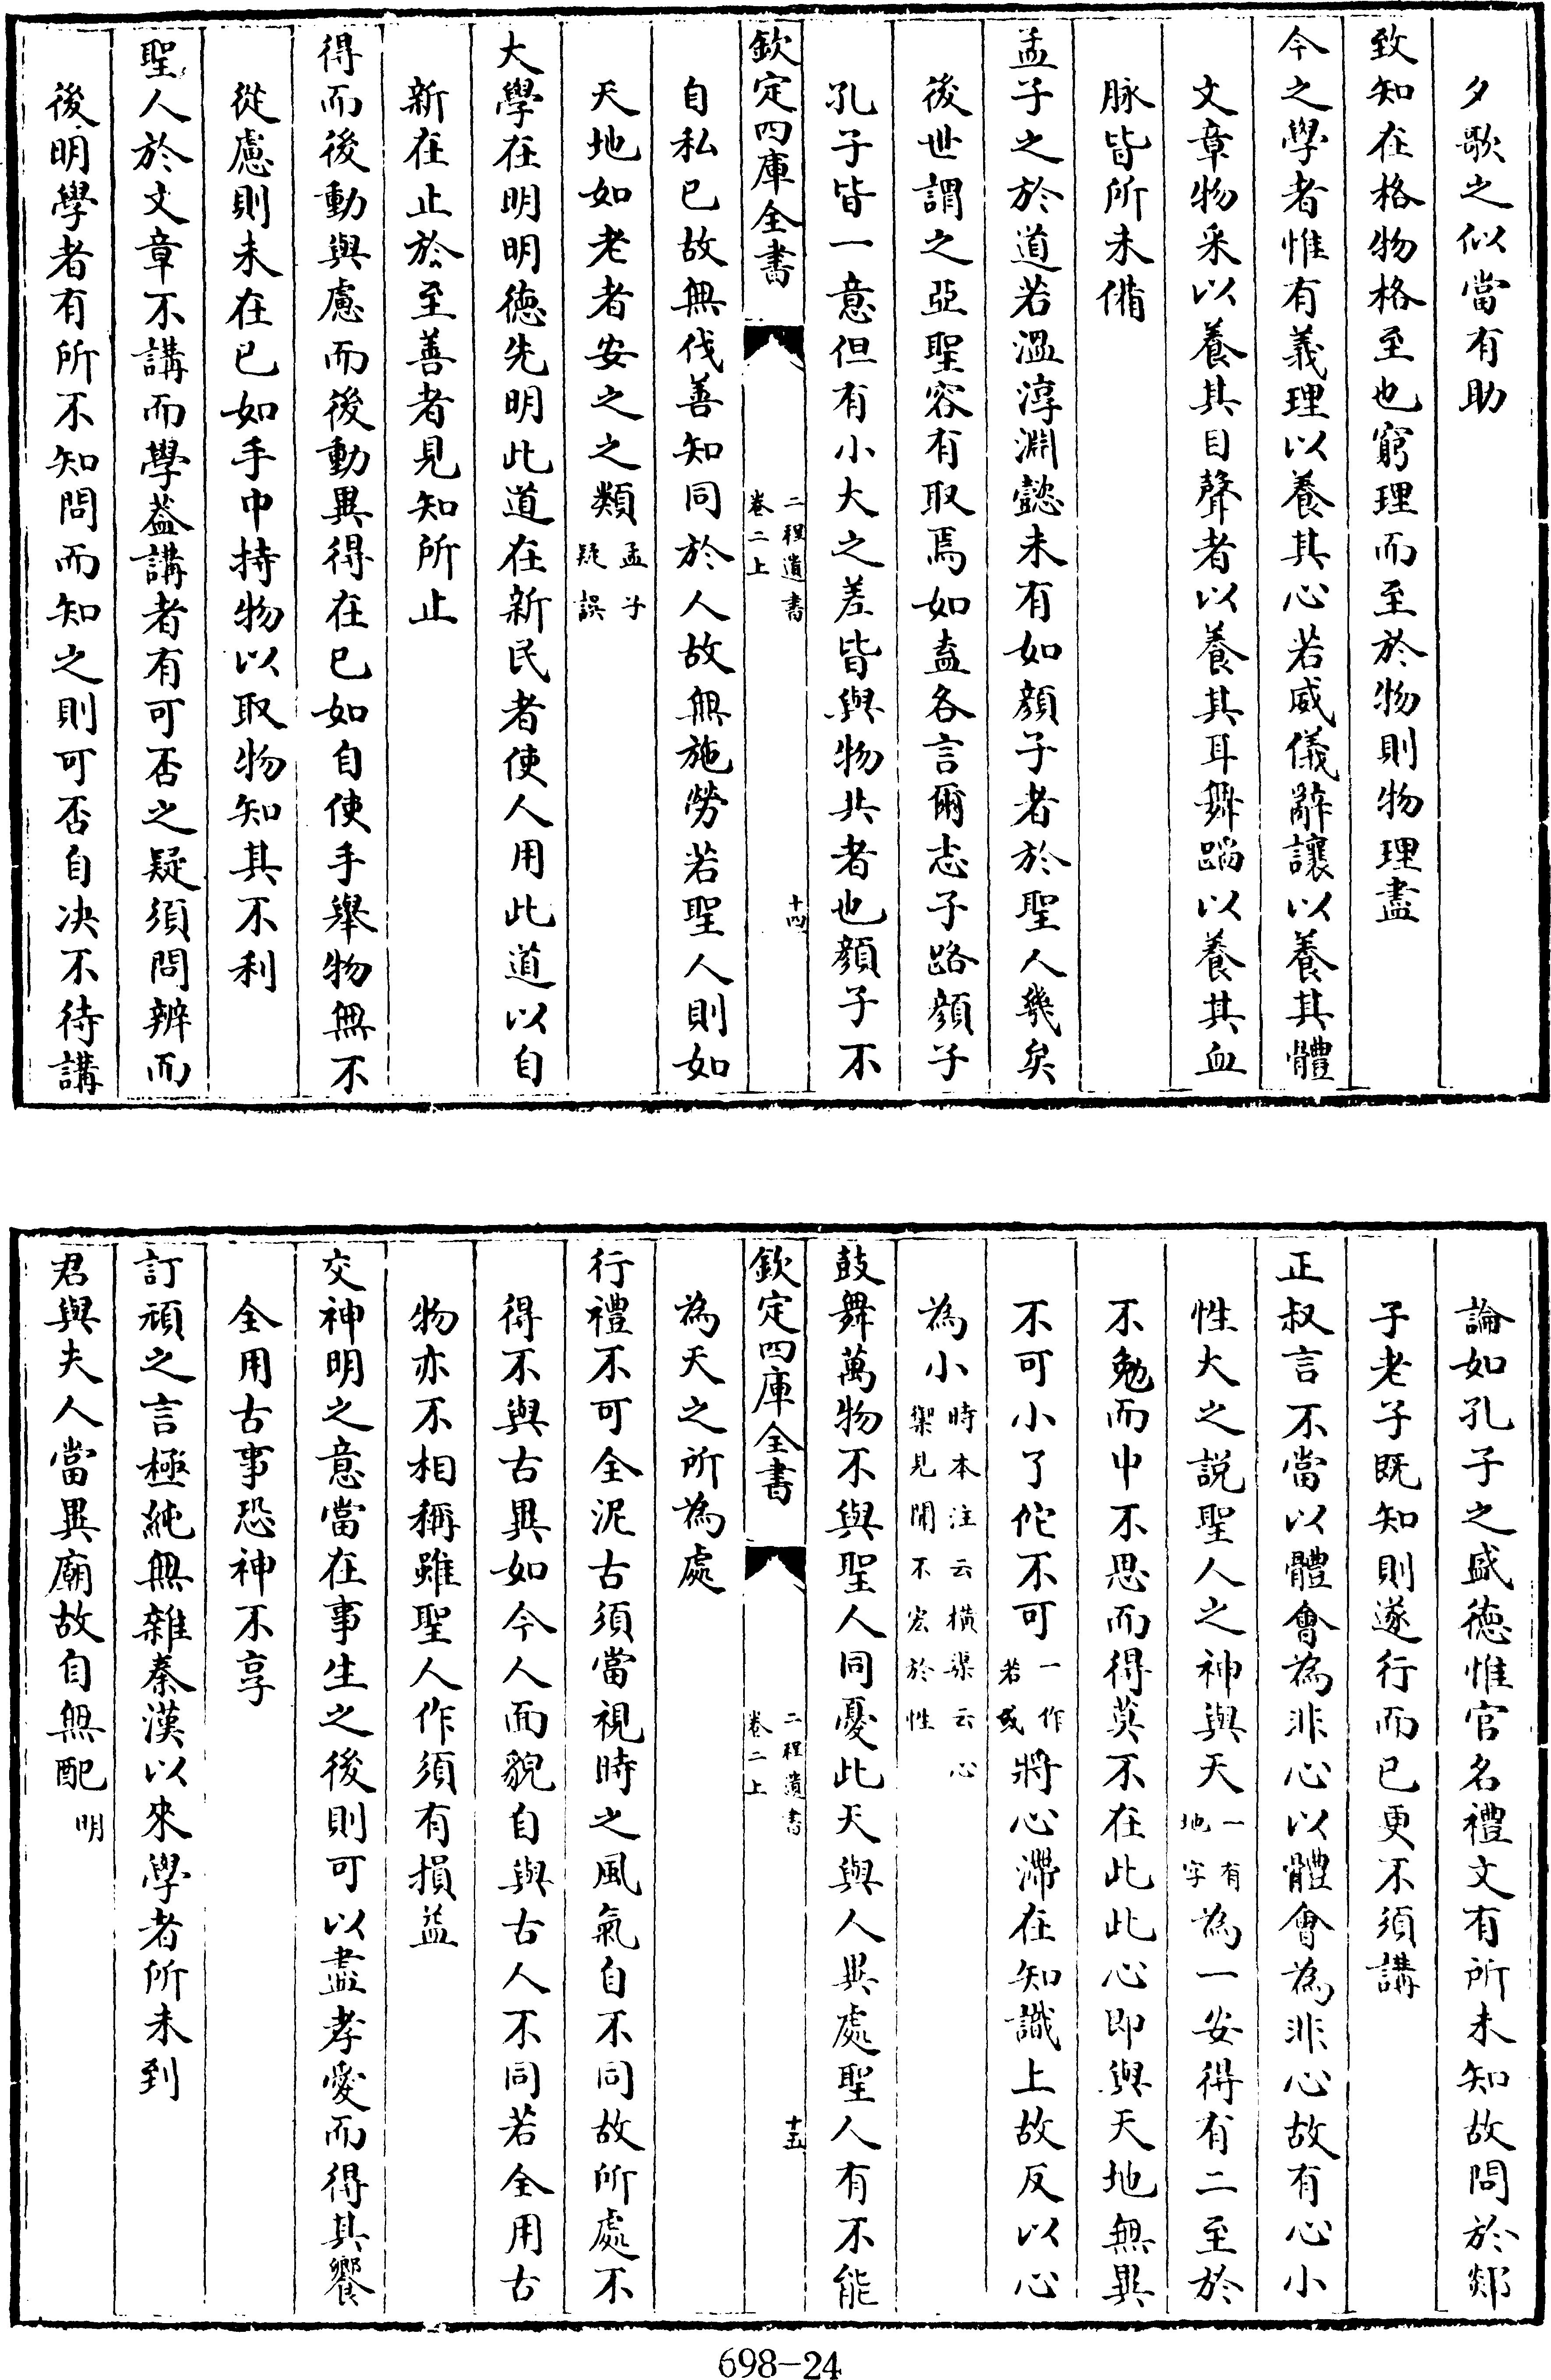 夕歌之似當有助
致知在格物格至也窮理而至於物則物理盡
今之學者惟有義理以養其心若威儀辭讓以養其體
文章物采以養其目聲者以養其耳舞蹈以養其血
脉皆所未備
孟子之於道若溫淳淵懿未有如顏子者於聖人幾矣
後世謂之亞聖容有取焉如盍各言爾志子路顏子
孔子皆一意但有小大之差皆與物共者也顏子不
欽定四庫全書
二程遺書
卷二上
十四
自私已故無伐善知同於人故無施勞若聖人則如
天地如老者安之之類孟子疑誤
大學在明明德先明此道在新民者使人用此道以自
新在止於至善者見知所止
得而後動與慮而後動異得在已如自使手舉物無不
從慮則未在已如手中持物以取物知其不利
聖人於文章不講而學葢講者有可否之疑須問辨而
後明學者有所不知問而知之則可否自决不待講
論如孔子之盛德惟官名禮文有所未知故問於郯
子老子既知則遂行而已更不須講
正叔言不當以體會為非心以體會為非心故有心小
性大之説聖人之神與天一有地字為一安得有二至於
不勉而中不思而得莫不在此此心即與天地無異
不可小了佗不可一作若或將心滯在知識上故反以心
為小時本注云橫渠云心禦見聞不宏於性
鼓舞萬物不與聖人同憂此天與人異處聖人有不能
欽定四庫全書
二程遺書
卷二上
十五
為天之所為處
行禮不可全泥古須當視時之風氣自不同故所處不
得不與古異如今人面貌自與古人不同若全用古
物亦不相稱雖聖人作須有損益
交神明之意當在事生之後則可以盡孝愛而得其饗
全用古事恐神不享
訂頑之言極純無雜秦漢以來學者所未到
君與夫人當異廟故自無配明
698-24